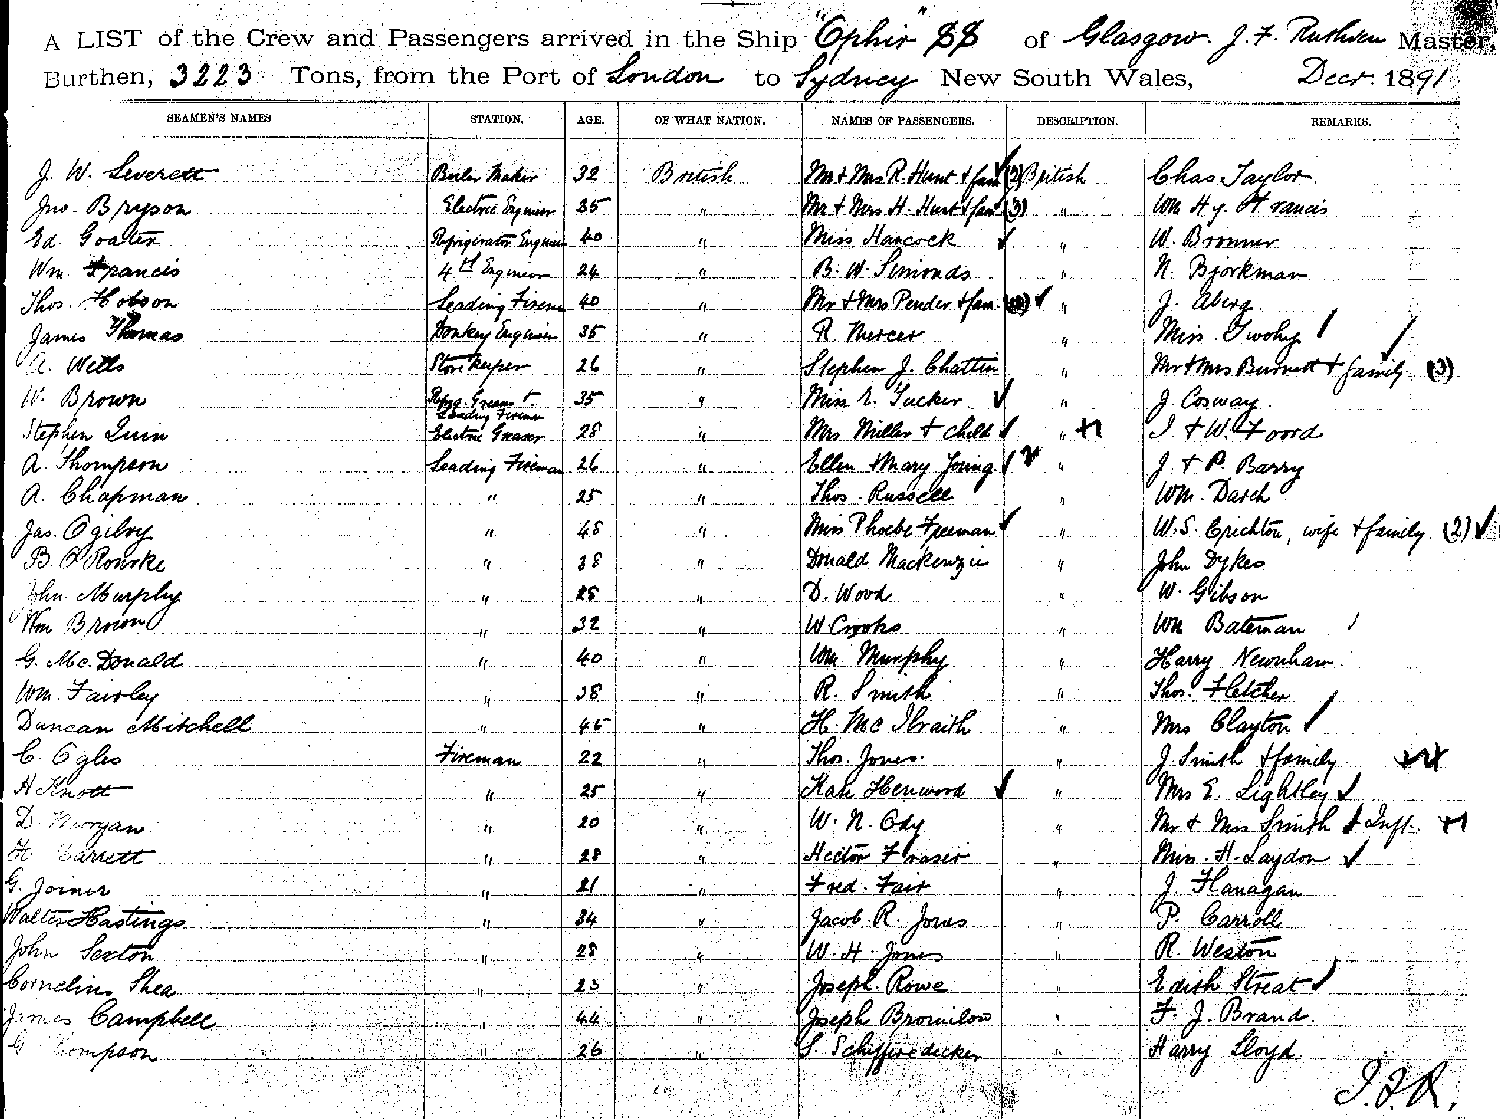 A LIST of the Crew and Passengers arrived in the Ship "Ophir" SS of Glasgow. J. F. Ruthven Master,
Burthen, 3223 Tons, from the Port of London to Sydney New South Wales, Decr. 1891
SEAMEN'S NAMES STATION. AGE. OF WHAT NATION. NAMES OF PASSENGERS. DESCRIPTION. REMARKS.
J. W. Leverett Boiler Maker 32 British Mr & Mrs R. Hunt & fam (2) British Chas Taylor
Jno. Bryson Electric Engineer 35 " Mr & Mrs H. Hunt & fam (3) " Wm Hy. Francis
Ed. Goater Refrigerator Engineer 40 " Miss Hancock " W. Bronner
Wm. Francis 4th Engineer 24 " B. W. Simonds " N. Bjorkman
Thos. Hobson Leading Firema 40 " Mr & Mrs Pender & fam. " J. Aberg
James Thomas Donkey Engineer 35 " R. Mercer " Miss Twohy
A. Wells Storekeeper 26 " Stephen J. Chattin " Mr & Mrs Burnett & family (3)
W. Brown Leading Fireman 35 " Miss E. Tucker " J. Cosway
Stephen Quin Electric Greaser 28 " Mrs Miller & child " J & W. Foord
A. Thompson Leading Fireman 26 " Ellen & Mary Young " J. & P. Barry
A. Chapman " 25 " Thos. Russell " Wm. Darch
Jas. Ogilvy " 48 " Miss Phoebe Freeman " W. S. Crichton, wife & family (2)
B. O'Rourke " 38 " Donald Mackenzie " John Dykes
John Murphy " 28 " D. Wood " W. Gibson
Wm Brown " 32 " W Crooks " Wm Bateman
G. McDonald " 40 " Wm Murphy " Harry Newnham
Wm. Fairley " 38 " R. Smith " Thos. Fletcher
Duncan Mitchell " 45 " H. Mc Ilraith " Mrs Clayton
C. Ogles Fireman 22 " Thos. Jones " J. Smith & family
H Knott " 25 " Kate Henwood " Mrs E. Lightley
D Morgan " 20 " W. N. Ody " Mr & Mrs Smith & Inft.
H Barrett " 28 " Hector Fraser " Miss H. Laydon
G. Joiner " 21 " Fred. Fair " J. Flanagan
Walter Hastings " 34 " Jacob R. Jones " P. Carroll
John Sexton " 28 " W. H. Jones " R. Weston
Cornelius Shea " 23 " Joseph Rowe " Edith Streat
James Campbell " 44 " Joseph Bromilow " F. J. Brand
G Thompson " 26 " Harry Lloyd
J.F.R.